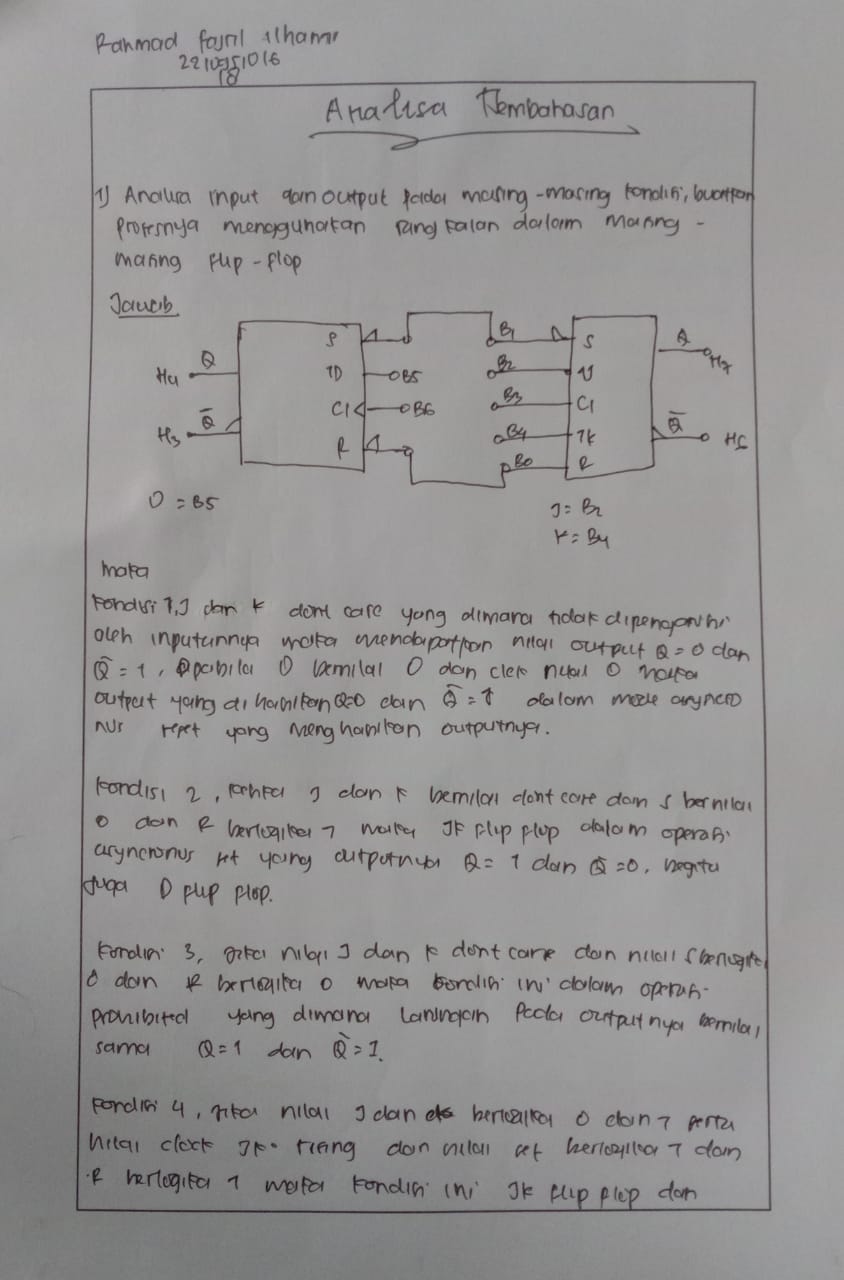 Rahmad fajril ilham
2210951016
18
Analisa Pembahasan
1) Analisa input dan output pada masing-masing kondisi, buatkan
prosesnya menggunakan rangkaian dalam masing-
masing flip-flop
Jawab
H4 Q S B1 S Q H7
1D B5 B2 1J
C1 B6 B3 C1
H3 Q̅ R B4 1K Q̅ H6
B0 R
D = B5 J = B2
K = B4
maka
Kondisi 1, J dan K dont care yang dimana tidak dipengaruhi
oleh inputannya maka mendapatkan nilai output Q = 0 dan
Q̅ = 1, apabila D bernilai 0 dan clck nilai 0 maka
output yang dihasilkan Q=0 dan Q̅ = 1 dalam mode asyncro
nus reset yang menghasilkan outputnya.
Kondisi 2, ketika J dan K bernilai dont care dan S bernilai
0 dan R berlogika 1 maka JK flip flop dalam operasi
asyncronus set yang outputnya Q = 1 dan Q̅ = 0, begitu
juga D flip flop.
Kondisi 3, jika nilai J dan K dont care dan nilai S berlogika
0 dan R berlogika 0 maka kondisi ini dalam operasi
prohibited yang dimana pada outputnya bernilai
sama Q = 1 dan Q̅ = 1.
Kondisi 4, jika nilai J dan berlogika 0 dan 1 serta
nilai clock JK rising dan nilai set berlogika 1 dan
R berlogika 1 maka kondisi ini JK flip flop dan